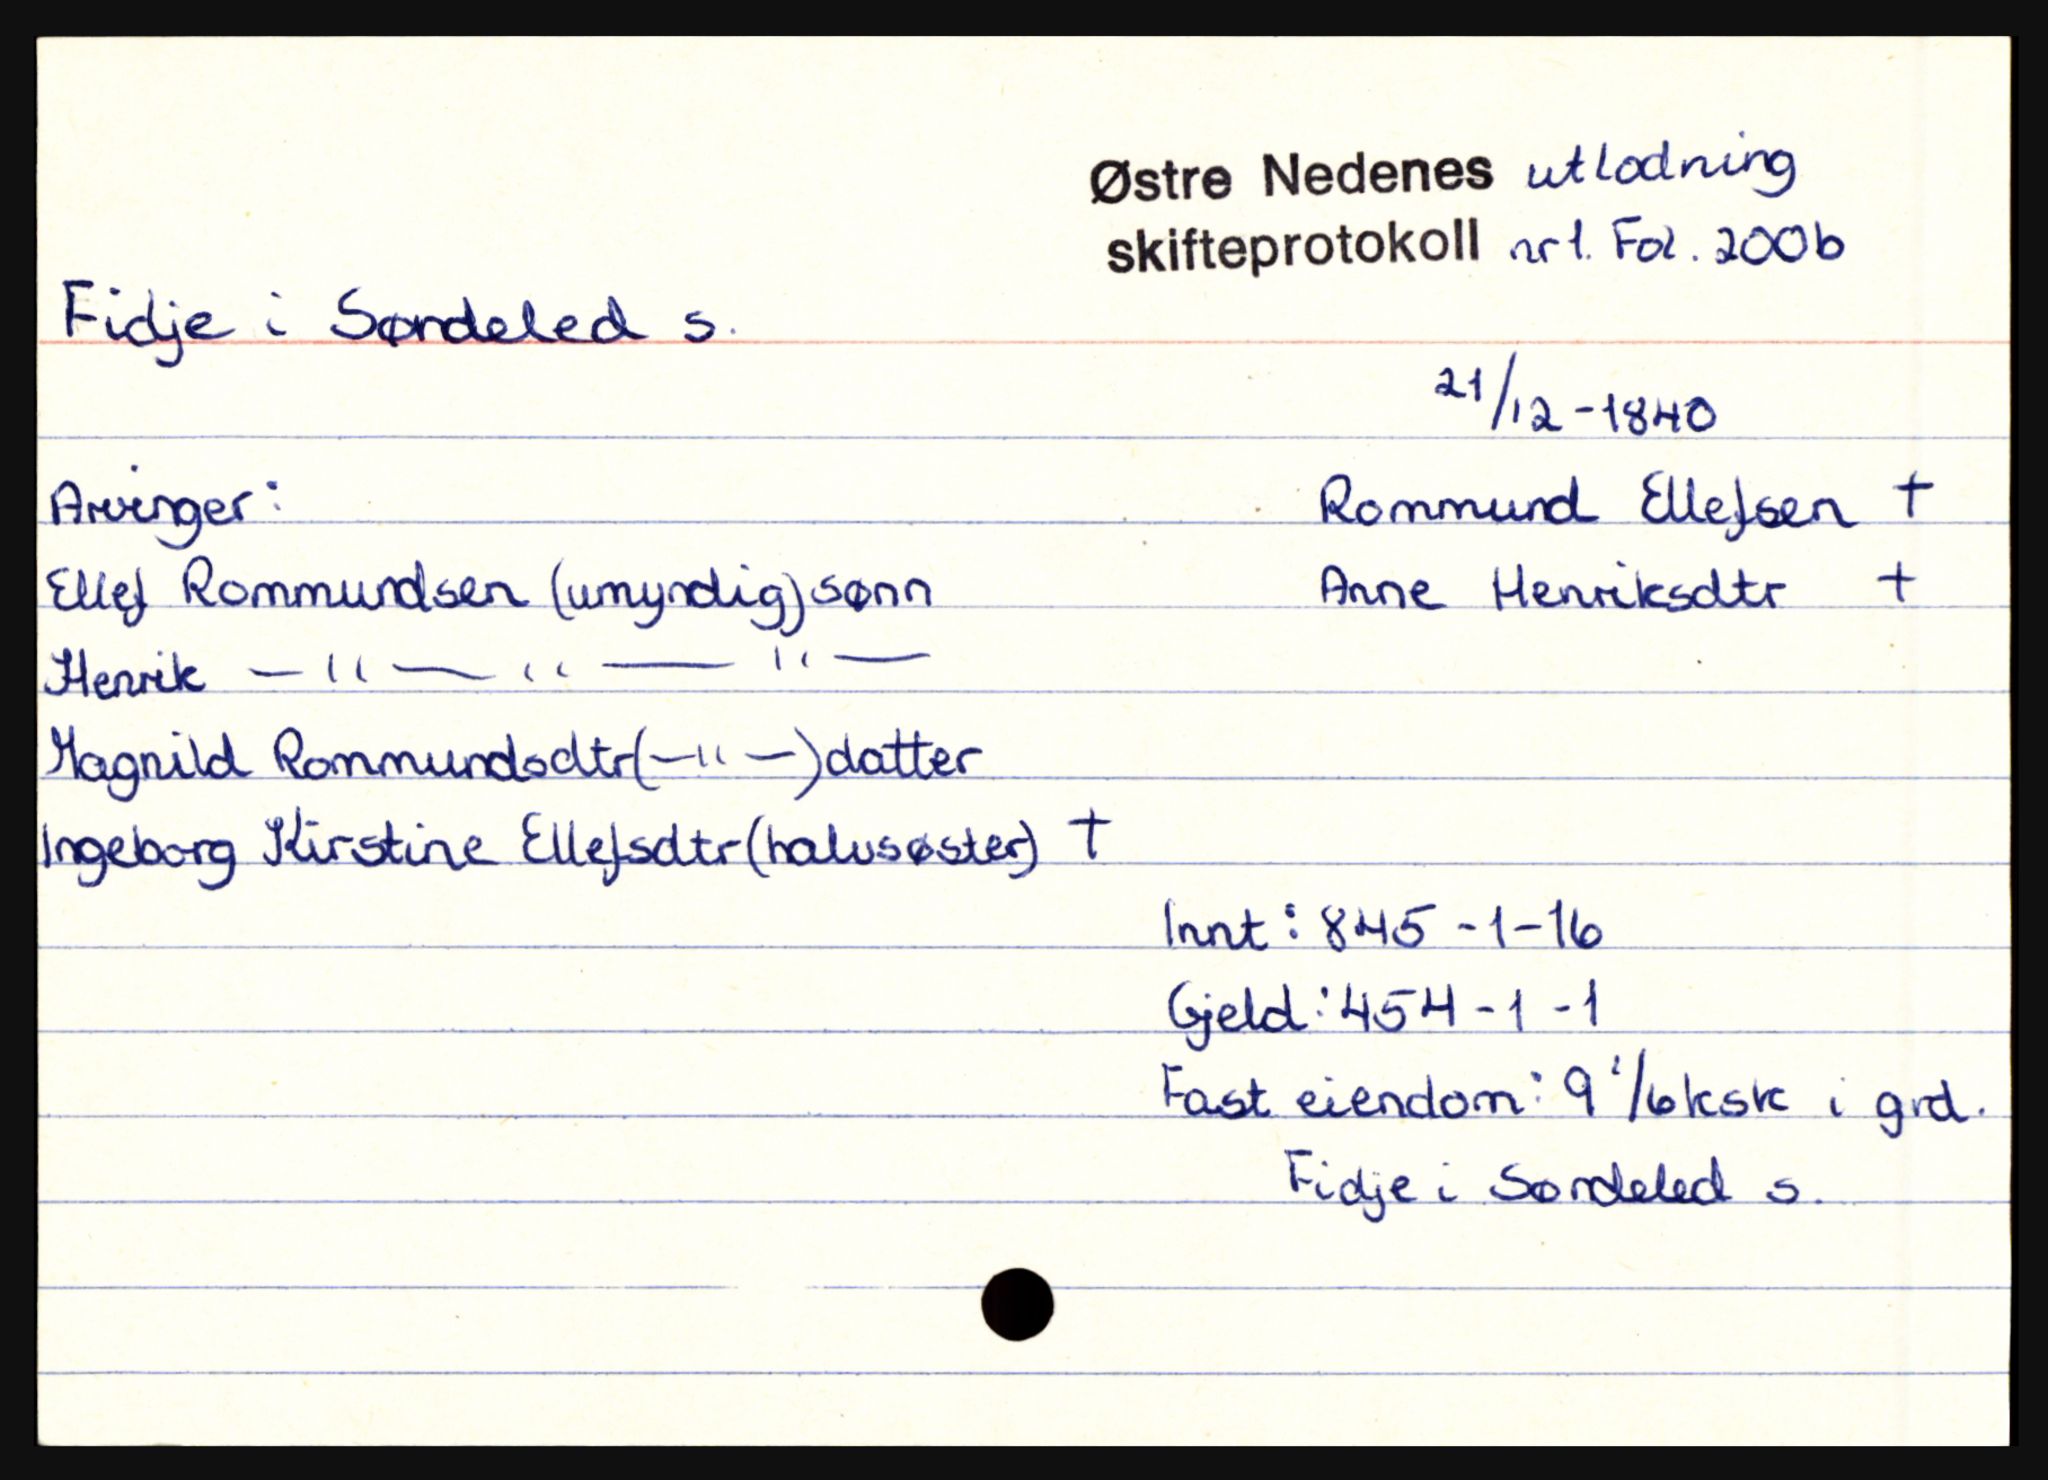 Østre Nedenes utlodning
skifteprotokoll nr 1. Fol. 200b
Fidje i Søndeled s.
21/12-1840
Arvinger: Rommund Ellefsen †
Ellef Rommundsen (umyndig) sønn Anne Henriksdtr †
Henrik — " — " — " —
Hagnild Rommundsdtr (—"—) datter
Ingeborg Kirstine Ellefsdtr (halvsøster) †
Innt: 845-1-16
Gjeld: 454-1-1
Fast eiendom: 9 1/6 ksk i grd.
Fidje i Søndeled s.